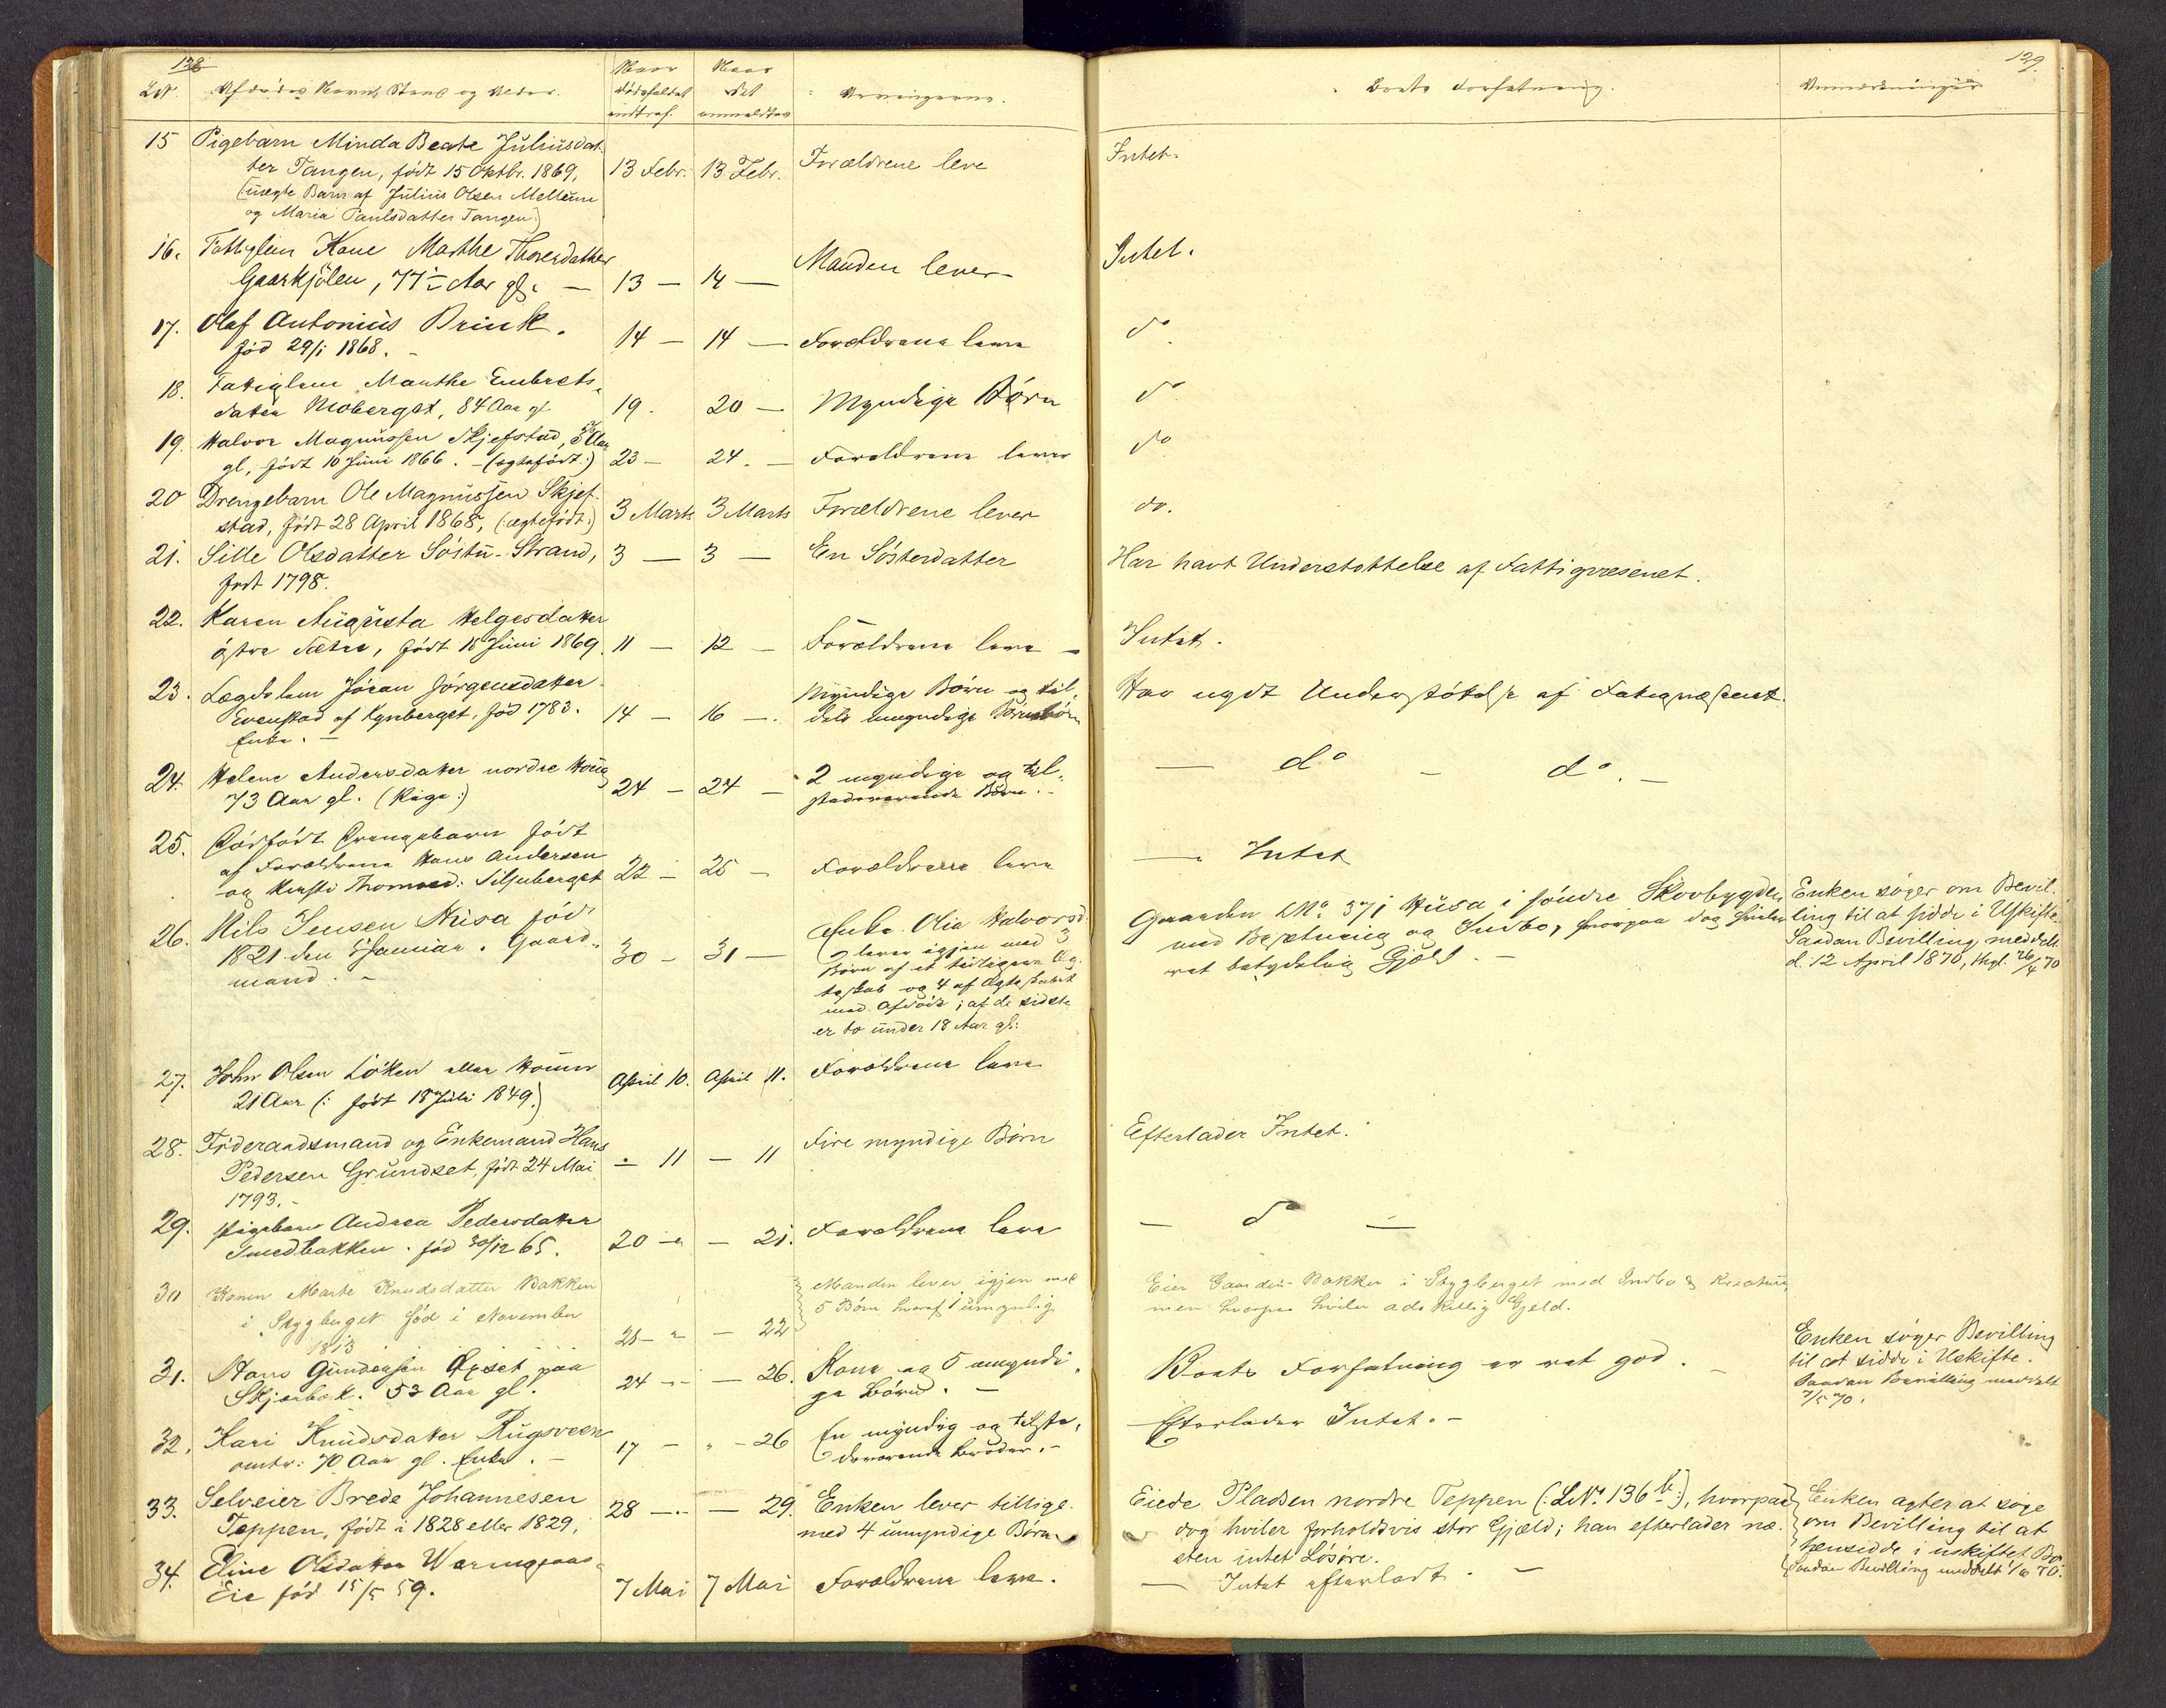 138
139.
LN. Afdødes Navn, Stand og Alder.
Naar Dødsfaldet indtraf.
Naar det anmeldtes
Arvingerne.
Boets Forfatning.
Anmærkninger
15 Pigebarn Minda Beate Juliusdat-
ter Tangen, født 15 Oktbr. 1869, 13 Febr. 13 Febr. Forældrene leve Intet.
(: uægte Barn af Julius Olsen Mellum
og Maria Paulsdatter Tangen :)
16. Fattiglem Kone Marthe Thoresdatter
Gaarkjølen, 77 Aar gl. — 13 — 14 — Manden lever — Intet.
17. Olaf Antonius Brink.
fød 29/1 1868. — 14 — 14 — Forældrene leve do
18. Fattiglem Marthe Embrets-
datter Moberget, 84 Aar gl 19. 20 — Myndige Børn do
19. Halvor Magnussen Skjefstad, Aar
gl, født 10 Juni 1866. — (ægtefødt :) 23 — 24. — Forældrene lever do
20 Drengebarn Ole Magnussen Skjef-
stad, født 28 April 1868, (: ægtefødt :) 3 Marts 3 Marts Forældrene lever do.
21. Sille Olsdatter Søstu-Strand, 3 — 3 — En Søsterdatter Har havt Understøttelse af Fattigvæsenet.
født 1798.
22. Karen Augusta Helgesdatter
østre Sætre, født 18 Juni 1869. 11 — 12 — Forældrene leve — Intet.
23. Lægdslem Jøran Jørgensdatter
Evenstad af Kynberget, fød 1783. 14 — 16 —. Myndige Børn og til-
dels umyndige Børnebørn Har nydt Understøttelse af Fattigvæsenet.
Enke. —
24. Helene Andersdatter nordre Houg
73 Aar gl. (Pige :) 24 — 24 — 2 myndige og til-
stedeværende Børn. — — do — do. —
25. Dødfødt Drengebarn født
af Forældrene Hans Andersen
og Kersti Thomasd: Siljuberget 22 — 25 — Forældrene leve — Intet
26. Nils Jensen Husa fød
1821 den Januar. Gaard-
mand. — 30 — 31 —
Enke Olia Halvorsd
lever igjen med 3
Børn af et tidligere Æg-
teskab og 4 af Ægteskabet
med Afdøde; af de sidste
er to under 18 Aar gl:
Gaarden LNo. 371 Husa i søndre Skovbygden
med Besætning og Indbo, hvorpaa dog hviler
ret betydelig Gjæld. —
Enken søger om Bevil-
ling til at sidde i Uskifte.
Saadan Bevilling meddelt
d. 12 April 1870, thgl. 26/4 70
27. John Olsen Løken eller Houm
21 Aar (: født 18 Juli 1849.) April 10. April 11. Forældrene leve
28. Føderaadsmand og Enkemand Hans
Pedersen Grundset, født 24 Mai — 11 — 11 Fire myndige Børn Efterlader Intet.
1793. —
29. Pigebarn Andrea Pedersdatter
Smedbakken. fød 30/12 65. 20 — — 21. Forældrene leve — do —
30 Konen Marte Knudsdatter Bakken
i Skygberget fød i November
1813 21 — — 22
Manden lever igjen med
5 Børn hvoraf 1 umyndig
Eier Gaarden Bakken i Skygberget med Indbo & Kreature,
men hvorpaa hviler adskillig Gjeld.
31. Hans Gundersen Opset paa
Skjærbæk. 53 Aar gl. 24 — — 26. Kone og 5 umyndi-
ge Børn. — Boets Forfatning er ret god. —
Enken søger Bevilling
til at sidde i Uskifte.
Saadan Bevilling meddelt
7/5 70.
32. Kari Knudsdatter Rugsveen
omtr: 70 Aar gl. Enke. — 17 — — 26 En myndig og tilste-
deværende Broder. — Efterlader Intet. —
33. Selveier Brede Johannesen
Teppen, født i 1828 eller 1829, 28 — — 29. Enken lever tillige-
med 4 umyndige Børn
Eiede Pladsen nordre Teppen (: LNo. 136 b :), hvorpaa
dog hviler forholdsvis stor Gjæld; han efterlader næ-
sten intet Løsøre.
Enken agter at søge
om Bevilling til at
hensidde i uskiftet Bo.
Saadan Bevilling meddelt 1/6 70.
34. Eline Olsdatter Warmgaas-
Eie fød 15/5 59. 7 Mai 7 Mai Forældrene leve. — Intet efterladt. —